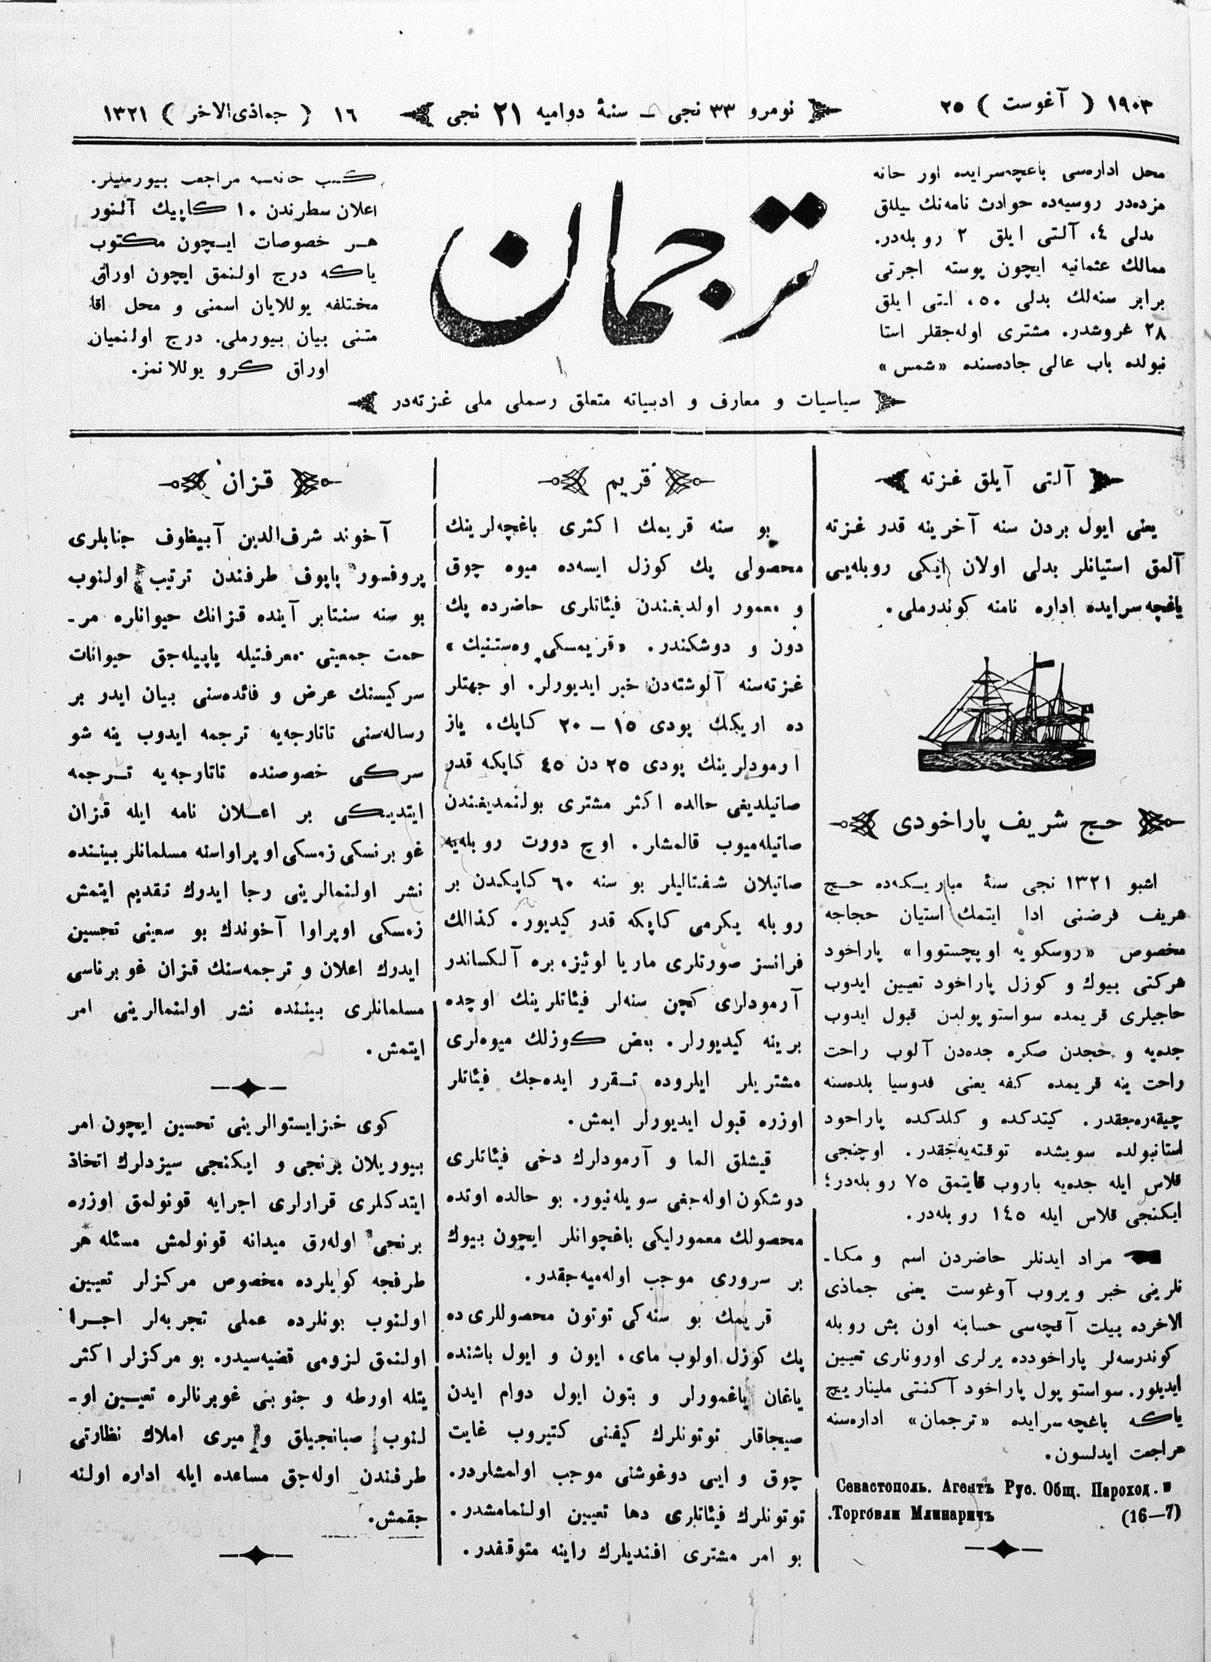 ١٩٠٣ ( آغوست ) ٢٥
نومرو ٣٣ نجی ـ سنۀ دوامیه ٢١ نجی
١٦ ( جماذی‌الاخر ) ١٣٢١
محل اداره‌سی باغچه‌سرایده اور خانه
مزده‌در روسیه‌ده حوادث نامه‌نك ییللق
بدلی ٤، آلتی ایلق ٢ روبله‌در.
ممالك عثمانیه ایچون پوسته اجرتی
برابر سنه‌لك بدلی ٥٠، التی ایلق
٢٨ غروشدر. مشتری اوله‌جقلر استا
نبولده باب عالی جاده‌سنده «شمس»
ترجمان
كتب خانه‌سه مراجعه بیورملیلر.
اعلان سطرندن ١٠ كاپیك آلنور
هر خصوصات ایچون مكتوب
یاكه درج اولنمق ایچون اوراق
مختلفه یوللایان اسمنی و محل اقا
متنی بیان بیورملی. درج اولنمیان
اوراق كرو یوللانمز.
سیاسیات و معارف و ادبیاته متعلق رسملی ملی غزته‌در
آلتی آیلق غزته
یعنی ایول بردن سنه آخرینه قدر غزته
آلمق استیانلر بدلی اولان ایكی روبله‌یی
باغچه‌سرایده اداره نامنه كوندرملی.
حج شریف پاراخودی
اشبو ١٣٢١ نجی سنۀ مباریكه‌ده حج
شریف فرضنی ادا ایتمك استیان حجاجه
مخصوص «روسكویه اوپچستووا» پاراخود
شركتی بیوك و كوزل پاراخود تعیین ایدوب
حاجیلری قریمده سواستوپولدن قبول ایدوب
جده‌یه و حجدن صكره جده‌دن آلوب راحت
راحت ینه قریمده كفه یعنی فدوسیا بلده‌سنه
چیقه‌ره‌جقدر. كیتدكده و كلدكده پاراخود
استانبولده سویشده توقته‌یه‌جقدر. اوچنجی
قلاس ایله جده‌یه باروب قایتمق ٧٥ روبله‌در؛
ایكنجی قلاس ایله ١٤٥ روبله‌در.
مراد ایدنلر حاضردن اسم و مكا۔
نلرینی خبر ویروب آوغوست یعنی جماذی
الاخرده بیلت آقچه‌سی حسابنه اون بش روبله
كوندرسه‌لر پاراخودده یرلری اورونلری تعیین
ایدیلور. سواستوپول پاراخود آكنتی ملیناریچ
یاكه باغچه‌سرایده «ترجمان» اداره‌سنه
مراجعت ایدلسون.
Севастополь. Агентъ Рус. Общ. Пароход. и
Торговли Млинаричъ.
(16—7)
قریم
بو سنه قریمك اكثری باغچه‌لرینك
محصولی پك كوزل ایسه‌ده میوه چوق
و معمور اولدیغندن فیئاتلری حاضرده پك
دون و دوشكندر. «قریمسكی وه‌ستنیك»
غزته‌سنه آلوشته‌دن خبر ایدیورلر. او جهتلر
ده اریكك پودی ١٥ – ٢٠ كاپك، یاز
آرمودلرینك پودی ٢٥ دن ٤٥ كاپكه قدر
صاتیلدیغی حالده اكثر مشتری بولنمدیغندن
صاتیله‌میوب قالمشلر. اوچ دووت روبله‌یه
صاتیلان شفتالیلر بو سنه ٦٠ كاپكدن بر
روبله یكرمی كاپكه قدر كیدیور. كذالك
فرانسز صورتلری ماریا لوئیز، بره آلكساندر
آرمودلری كچن سنه‌لر فیئاتلرینك اوچده
برینه كیدیورلر. بعض كوزلك میوه‌لری
مشتریلر ایلروده تقرر ایده‌جك فیئاتلر
اوزره قبول ایدیورلر ایمش.
قیشلق الما و آرمودلرك دخی فیئاتلری
دوشكون اوله‌جغی سویله‌نیور. بو حالده اوتده
محصولك معمورلیكی باغچوانلر ایچون بیوك
بر سروری موجب اوله‌میه‌جقدر.
قریمك بو سنه‌كی توتون محصوللری ده
پك كوزل اولوب مای، ایون و ایول باشنده
یاغمان یاغمورلر و بتون ایول دوام ایدن
صیجاقلر توتونلرك كیفنی كتیروب غایت
چوق و ایی دوغوشنی موجب اولمشلردر.
توتونلرك فیئاتلری دها تعیین اولنمامشدر.
بو امر مشتری افندیلرك راینه متوقفدر.
قزان
آخوند شرف‌الدین آبیظوف جنابلری
پروفسور پاپوف طرفندن ترتیب اولنوب
بو سنه سنتابر آینده قزانك حیوانلره مر۔
حمت جمعیتی معرفتیله یاپیله‌جق حیوانات
سركیسنك عرض و فائده‌سنی بیان ایدر بر
رساله‌سنی تاتارجه‌یه ترجمه ایدوب ینه شو
سركی خصوصنده تاتارجه‌یه ترجمه
ایتدیكی بر اعلان نامه ایله قزان
غوبرنسكی زمسكی اوپراواسنه مسلمانلر بیننده
نشر اولنمالرینی رجا ایدرك تقدیم ایتمش
زمسكی اوپراوا آخوندك بو سعینی تحسین
ایدرك اعلان و ترجمه‌سنك قزان غوبرناسی
مسلمانلری بیننده نشر اولنمالرینی امر
ایتمش.
كوی خزایستوالرینی تحسین ایچون امر
بیوریلان برنجی و ایكنجی سیزدلرك اتخاذ
ایتدكلری قرارلری اجرایه قونولمق اوزره
برنجی اوله‌رق میدانه قونولمش مسئله هر
طرفجه كویلرده مخصوص مركزلر تعیین
اولنوب بونلرده عملی تجربه‌لر اجرا
اولنمق لزومی قضیه‌سیدر. بو مركزلر اكثر
یتله اورطه و جنوبی غوبرنالره تعیین او۔
لنوب صبانجیلق و میری املاك نظارتی
طرفندن اوله‌جق مساعده ایله اداره اولنه
جقمش.